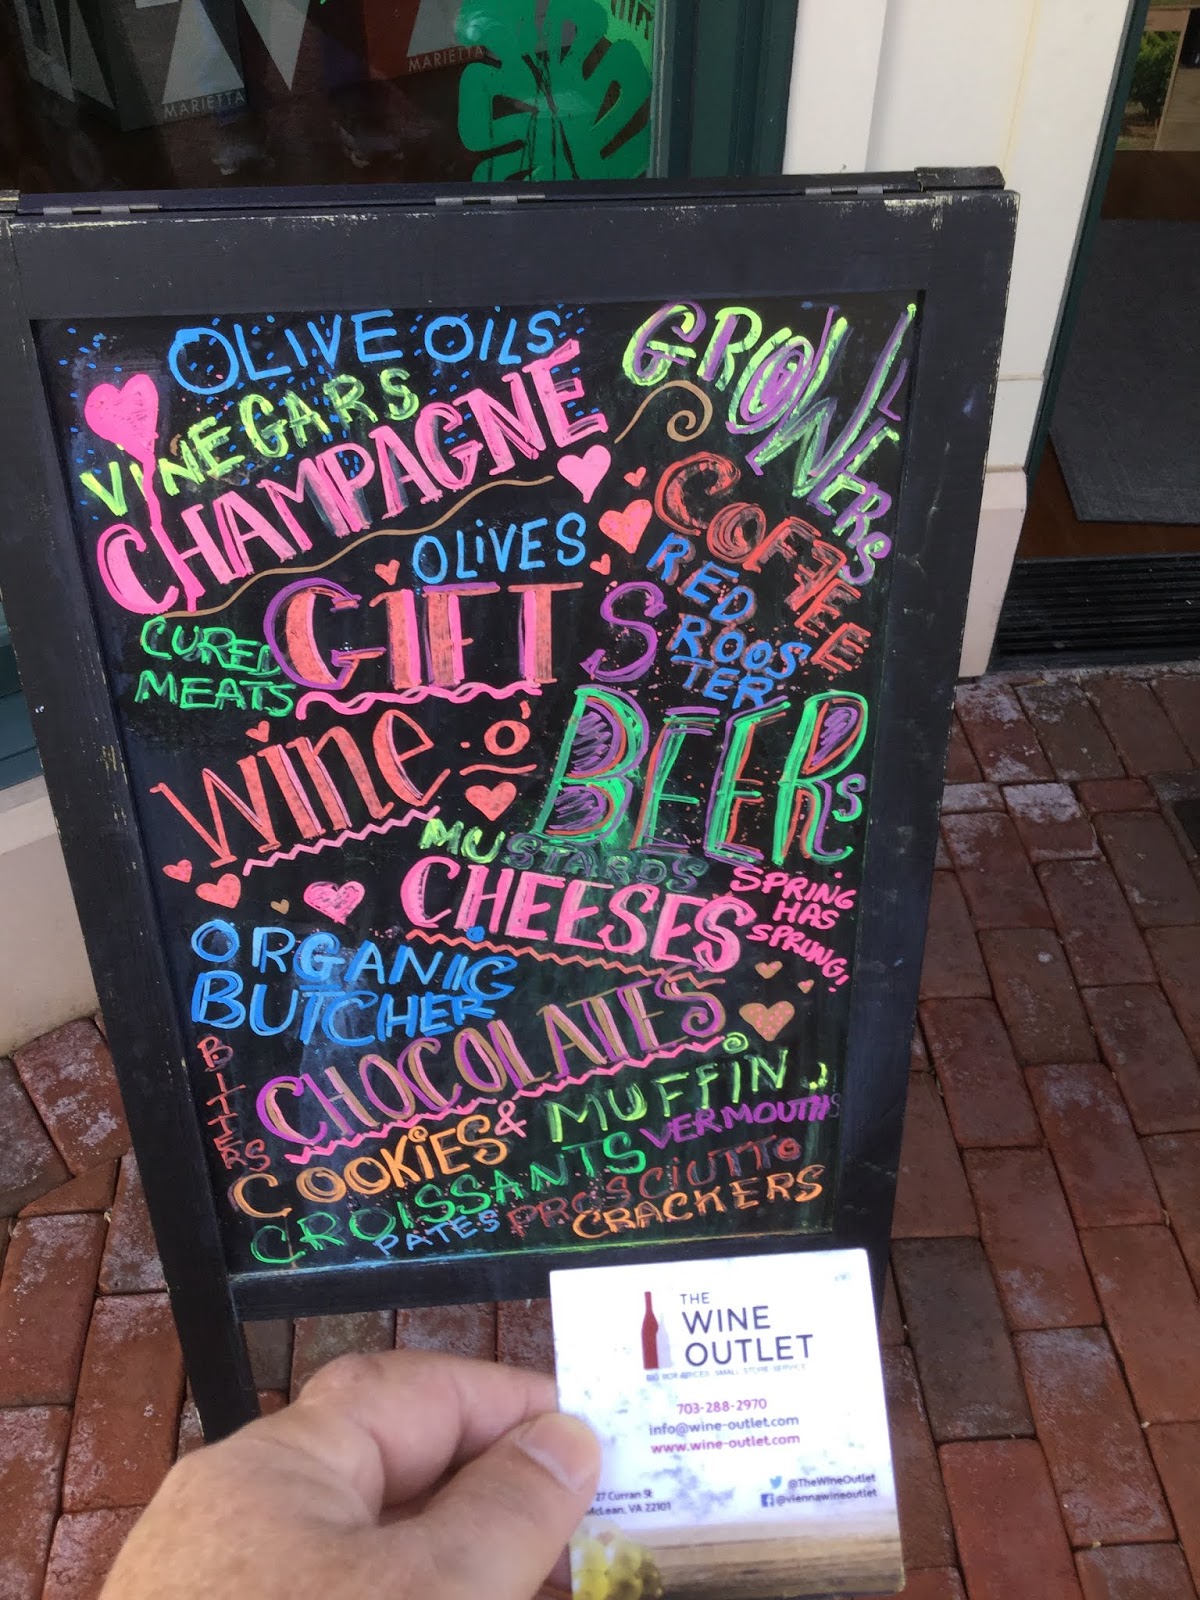 MARIETTA
MARIETTA
OLIVE OILS
VINEGARS
CHAMPAGNE
GROWERS
OLIVES
COFFEE
RED
ROOS
TER
CURED
MEATS
GIFTS
WINE O'
BEERS
MUSTARDS
CHEESES
SPRING
HAS
SPRUNG!
ORGANIC
BUTCHER
BITTERS
CHOCOLATES
COOKIES & MUFFIN
CROISSANTS
VERMOUTHS
PATES
PROSCIUTTO
CRACKERS
THE
WINE
OUTLET
SMALL STORE SERVICE
703-288-2970
info@wine-outlet.com
www.wine-outlet.com
@TheWineOutlet
@viennawineoutlet
27 Curran St
McLean, VA 22101